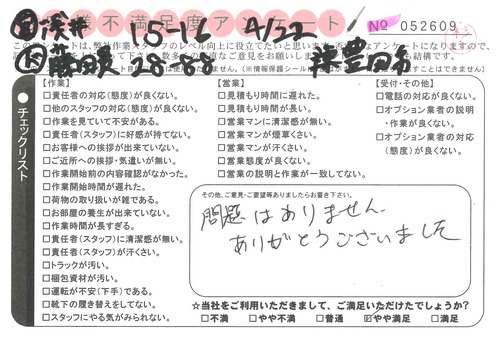 お客様不満足度アンケート
No 052609
浅井 15-16 4/22
藤田英 28-88 津豊田市
チェックリスト
【作業】
□責任者の対応(態度)が良くない。
□他のスタッフの対応(態度)が良くない。
□作業を見ていて不安がある。
□責任者(スタッフ)に好感が持てない。
□お客様への挨拶が出来ていない。
□ご近所への挨拶・気遣いが無い。
□作業開始前の内容確認がなかった。
□作業開始時間が遅れた。
□荷物の取り扱いが雑である。
□お部屋の養生が出来ていない。
□作業時間が長すぎる。
□責任者(スタッフ)に清潔感が無い。
□責任者(スタッフ)が汗くさい。
□トラックが汚い。
□梱包資材が汚い。
□運転が不安(下手)である。
□靴下の履き替えをしてない。
□スタッフにやる気がみられない。
【営業】
□見積もり時間に遅れた。
□見積もり時間が長い。
□営業マンに清潔感が無い。
□営業マンが煙草くさい。
□営業マンが汗くさい。
□営業態度が良くない。
□営業の説明と作業が一致してない。
【受付・その他】
□電話の対応が良くない。
□オプション業者の説明
・作業が良くない。
□オプション業者の対応
(態度)が良くない。
その他、ご意見・ご要望等ありましたらお書き下さい。
問題はありません。
ありがとうございました
☆当社をご利用いただきまして、ご満足いただけたでしょうか?
□不満 □やや不満 □普通 ☑やや満足 □満足